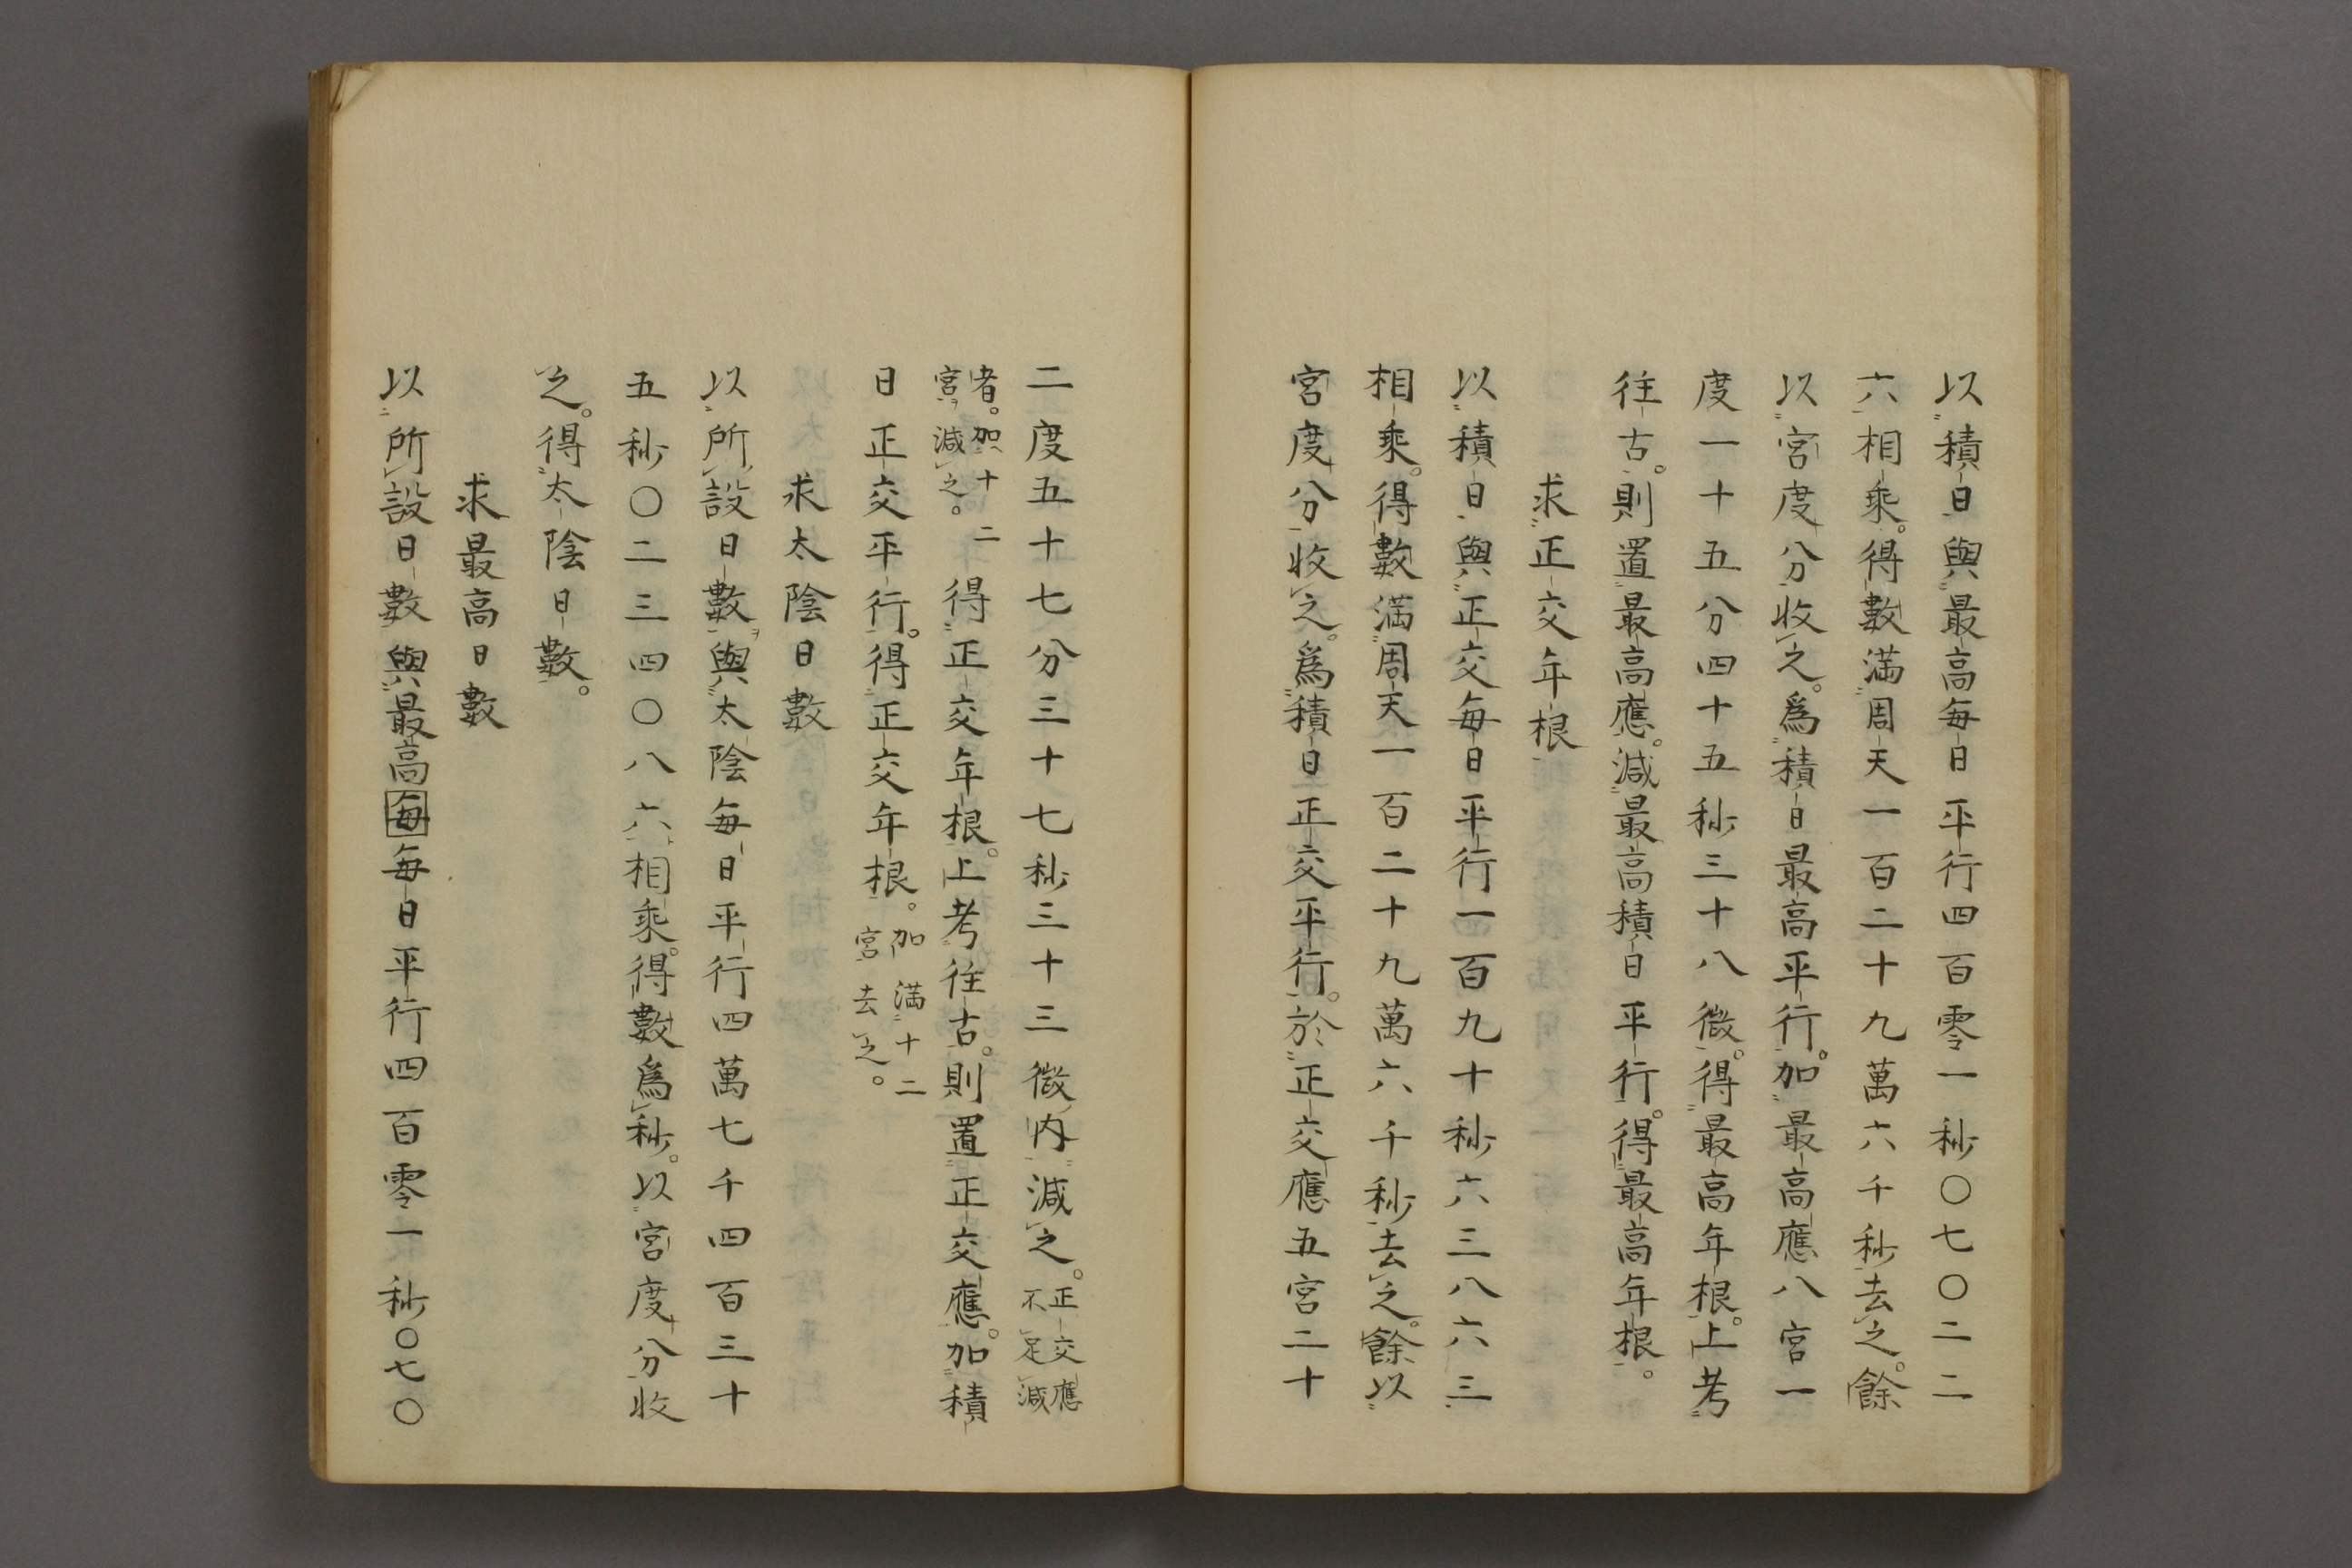 以積日與最高每日平行四百零一秒〇七〇二二
六相乘。得數滿周天一百二十九萬六千秒去之。餘
以宮度分收之。爲積日最高平行。加最高應八宮一
度一十五分四十五秒三十八微。得最高年根。上考
往古。則置最高應。減最高積日平行。得最高年根。
求正交年根
以積日與正交每日平行一百九十秒六三八六三
相乘。得數滿周天一百二十九萬六千秒去之。餘以
宮度分收之。爲積日正交平行。於正交應五宮二十
二度五十七分三十七秒三十三微內減之。正交應不足減
者。加十二宮減之。得正交年根。上考往古。則置正交應。加積
日正交平行。得正交年根。加滿十二宮去之。
求太陰日數
以所設日數與太陰每日平行四萬七千四百三十
五秒〇二三四〇八六相乘。得數爲秒。以宮度分收
之。得太陰日數。
求最高日數
以所設日數與最高每每日平行四百零一秒〇七〇